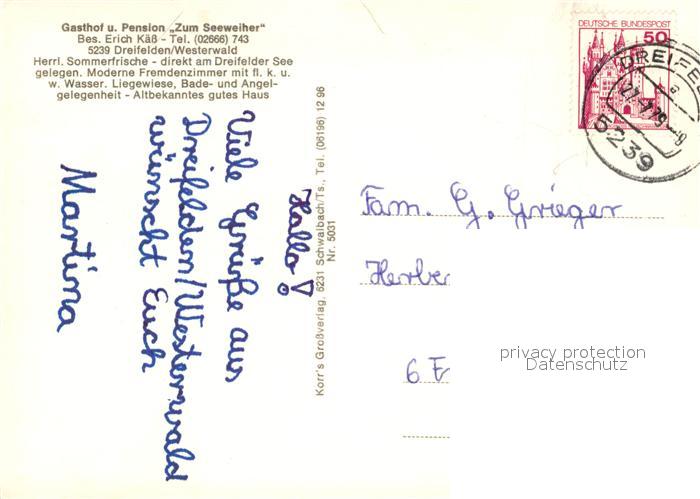 Gasthof u. Pension „Zum Seeweiher“
Bes. Erich Käß - Tel. (02666) 743
5239 Dreifelden/Westerwald
Herrl. Sommerfrische - direkt am Dreifelder See
gelegen. Moderne Fremdenzimmer mit fl. k. u.
w. Wasser. Liegewiese, Bade- und Angel-
gelegenheit - Altbekanntes gutes Haus
Hallo!
Viele Grüße aus
Dreifelden/Westerwald
wünscht Euch
Martina
Korr's Großverlag, 6231 Schwalbach/Ts., Tel. (06196) 12 96
Nr. 5031
DEUTSCHE BUNDESPOST
50
DREIFEL
a
5239
Fam. G. Grieger
Herber
6 F
privacy protection
Datenschutz